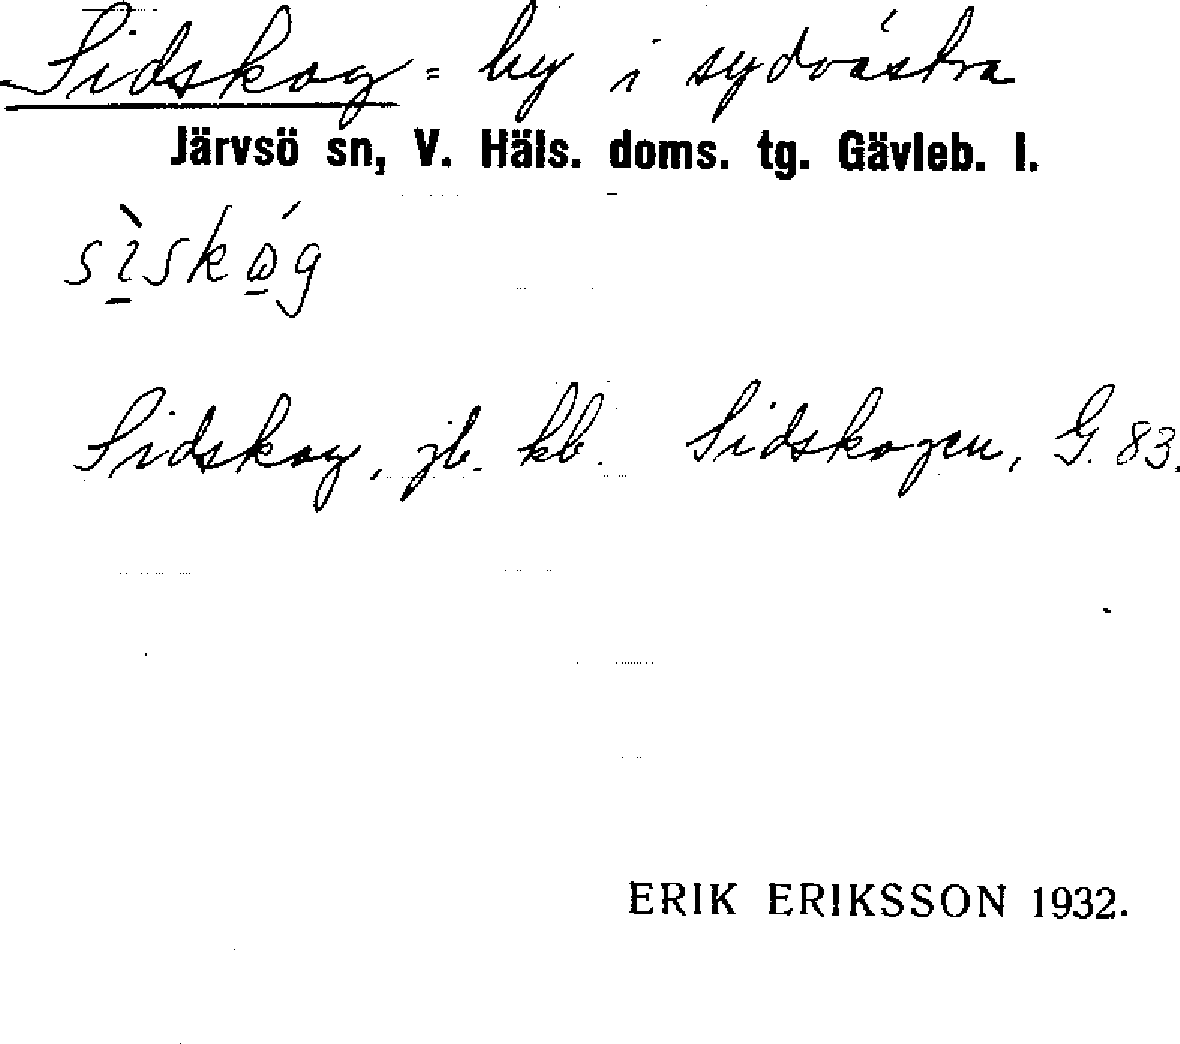 Sidskog = by i sydvästra
Järvsö sn, V. Häls. doms. tg. Gävleb. l.
sı̲̀skώ̲g
Sidskog, jb. kb. Sidskogen, G. 83.
ERIK ERIKSSON 1932.